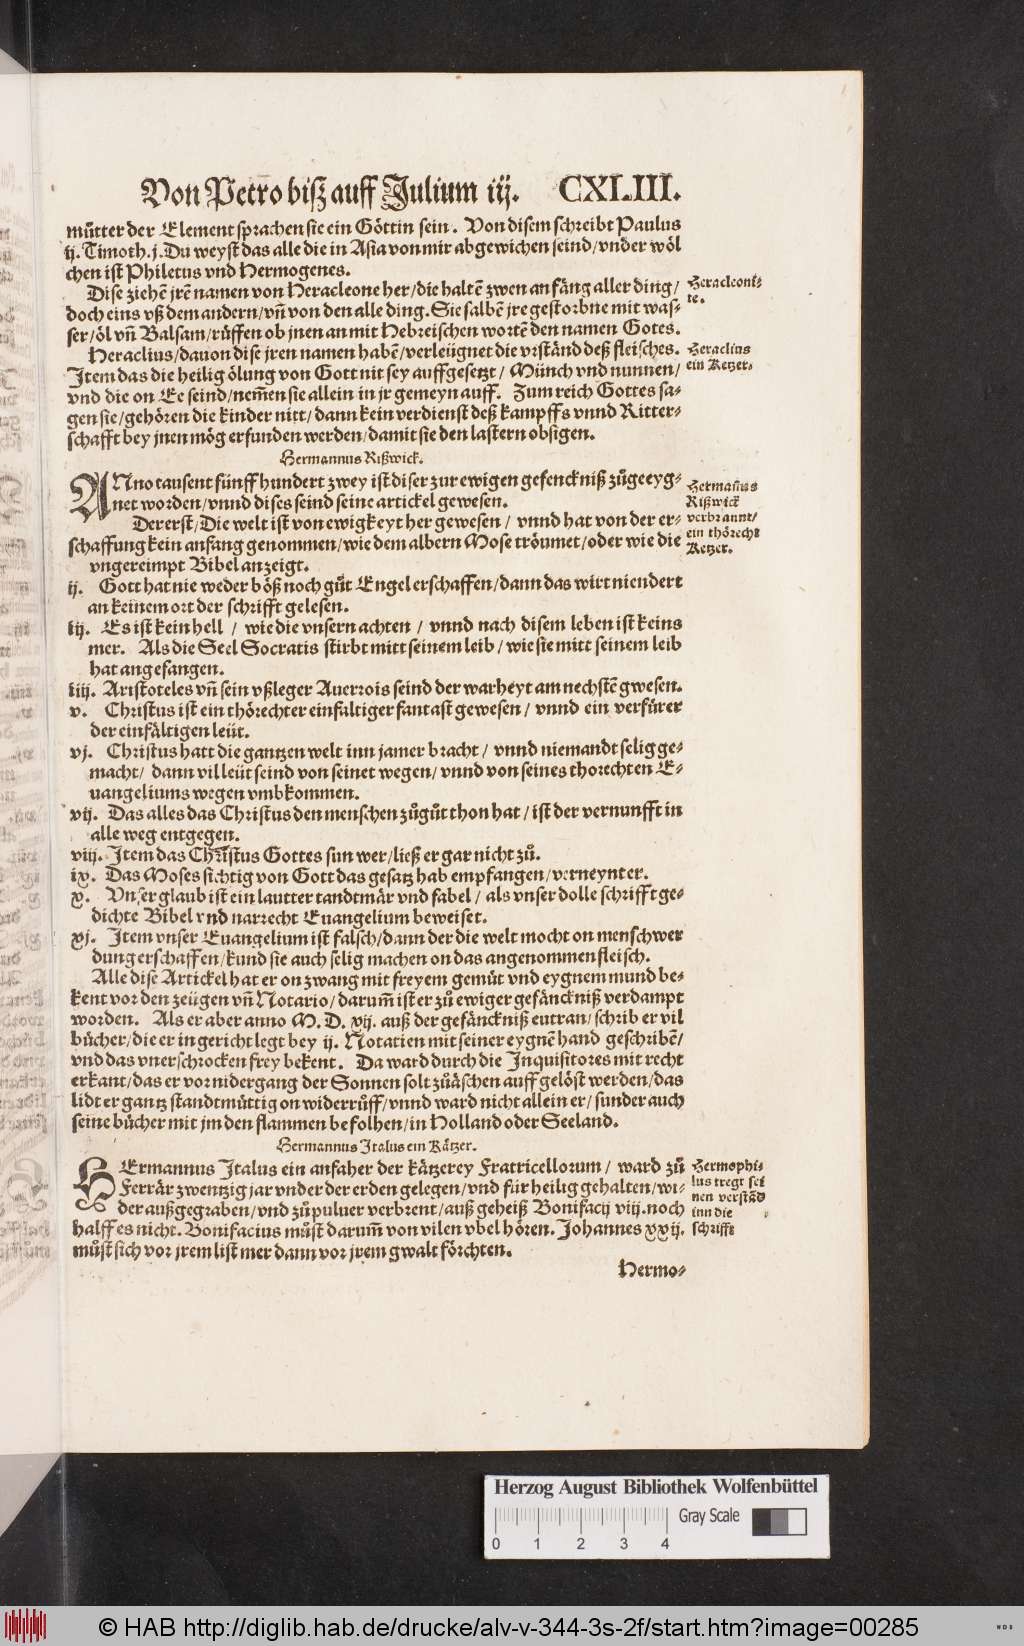 Von Petro biß auff Julium iij. CXLIII.
můtter der Element sprachen sie ein Göttin sein. Von disem schreibt Paulus
ij. Timoth. j. Du weyst das alle die in Asia von mir abgewichen seind/vnder wöl
chen ist Philetus vnd Hermogenes.
Dise ziehē jrē namen von Heracleone her/die haltē zwen anfäng aller ding/
doch eins vß dem andern/vñ von den alle ding. Sie salbē jre gestorbne mit was-
ser/öl vñ Balsam/rüffen ob jnen an mit Hebreischen wortē den namen Gotes.
Heracleoni-
te.
Heraclius/dauon dise jren namen habē/verleügnet die vrständ deß fleisches.
Item das die heilig ölung von Gott nit sey auffgesetzt/ Münch vnd nunnen/
vnd die on Ee seind/nem̄en sie allein in jr gemeyn auff. Zum reich Gottes sa-
gen sie/gehören die kinder nitt/dann kein verdienst deß kampffs vnnd Ritter-
schafft bey jnen mög erfunden werden/damit sie den lastern obsigen.
Heraclius
ein Ketzer.
Hermannus Rißwick.
ANno tausent fünff hundert zwey ist diser zur ewigen gefenckniß zůgeeyg-
net worden/vnnd dises seind seine artickel gewesen.
Der erst/Die welt ist von ewigkeyt her gewesen/ vnnd hat von der er-
schaffung kein anfang genommen/wie dem albern Mose tröumet/oder wie die
vngereimpt Bibel anzeigt.
Hermañus
Rißwick
verbrannt/
ein thörecht
Ketzer.
ij. Gott hat nie weder böß noch gůt Engel erschaffen/dann das wirt niendert
an keinem ort der schrifft gelesen.
iij. Es ist kein hell / wie die vnsern achten / vnnd nach disem leben ist keins
mer. Als die Seel Socratis stirbt mitt seinem leib/wie sie mitt seinem leib
hat angefangen.
iiij. Aristoteles vñ sein vßleger Auerrois seind der warheyt am nechstē gwesen.
v. Christus ist ein thörechter einfaltiger fantast gewesen/ vnnd ein verfürer
der einfältigen leüt.
vj. Christus hatt die gantzen welt inn jamer bracht/ vnnd niemandt selig ge-
macht/ dann vil leüt seind von seinet wegen/vnnd von seines thorechten E-
uangeliums wegen vmbkommen.
vij. Das alles das Christus den menschen zůgůt thon hat/ist der vernunfft in
alle weg entgegen.
viij. Item das Christus Gottes sun wer/ließ er gar nicht zů.
ix. Das Moses sichtig von Gott das gesatz hab empfangen/verneynt er.
x. Vnser glaub ist ein lautter tandtmär vnd fabel/ als vnser dolle schrifft ge-
dichte Bibel vnd narrecht Euangelium beweiset.
xj. Item vnser Euangelium ist falsch/dann der die welt mocht on menschwer
dung erschaffen/kund sie auch selig machen on das angenommen fleisch.
Alle dise Artickel hat er on zwang mit freyem gemůt vnd eygnem mund be-
kent vor den zeügen vñ Notario/darum̄ ist er zů ewiger gefänckniß verdampt
worden. Als er aber anno M. D. xij. auß der gefänckniß entran/schrib er vil
bücher/die er in gericht legt bey ij. Notarien mit seiner eygnē hand geschribē/
vnd das vnerschrocken frey bekent. Da ward durch die Inquisitores mit recht
erkant/das er vor nidergang der Sonnen solt zů äschen auffgelöst werden/das
lidt er gantz standtmüttig on widerrůff/vnnd ward nicht allein er/sunder auch
seine bücher mit jm den flammen befolhen/in Holland oder Seeland.
Hermannus Italus ein Kätzer.
HErmannus Italus ein anfaher der kätzerey Fratricellorum/ ward zů
Ferrär zwentzig jar vnder der erden gelegen/vnd für heilig gehalten/wi-
der außgegraben/vnd zů puluer verbrent/auß geheiß Bonifacij viij. noch
halff es nicht. Bonifacius můst darum̄ von vilen vbel hören. Johannes xxij.
můst sich vor jrem list mer dann vor jrem gwalt förchten.
Hermophi-
lus tregt sei
nen verständ
inn die
schrifft
Hermo-
Herzog August Bibliothek Wolfenbüttel
Gray Scale
0 1 2 3 4
© HAB http://diglib.hab.de/drucke/alv-v-344-3s-2f/start.htm?image=00285